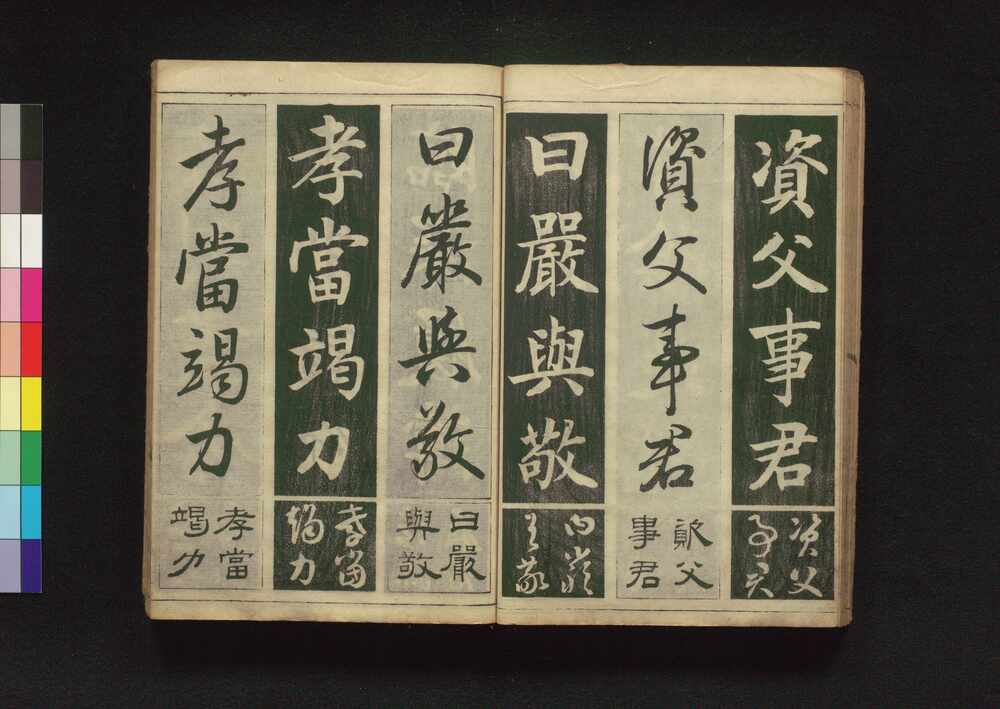 資父事君
資父
事君
資父事君
資父
事君
曰嚴與敬
曰嚴
與敬
曰嚴與敬
曰嚴
與敬
孝當竭力
孝當
竭力
孝當竭力
孝當
竭力